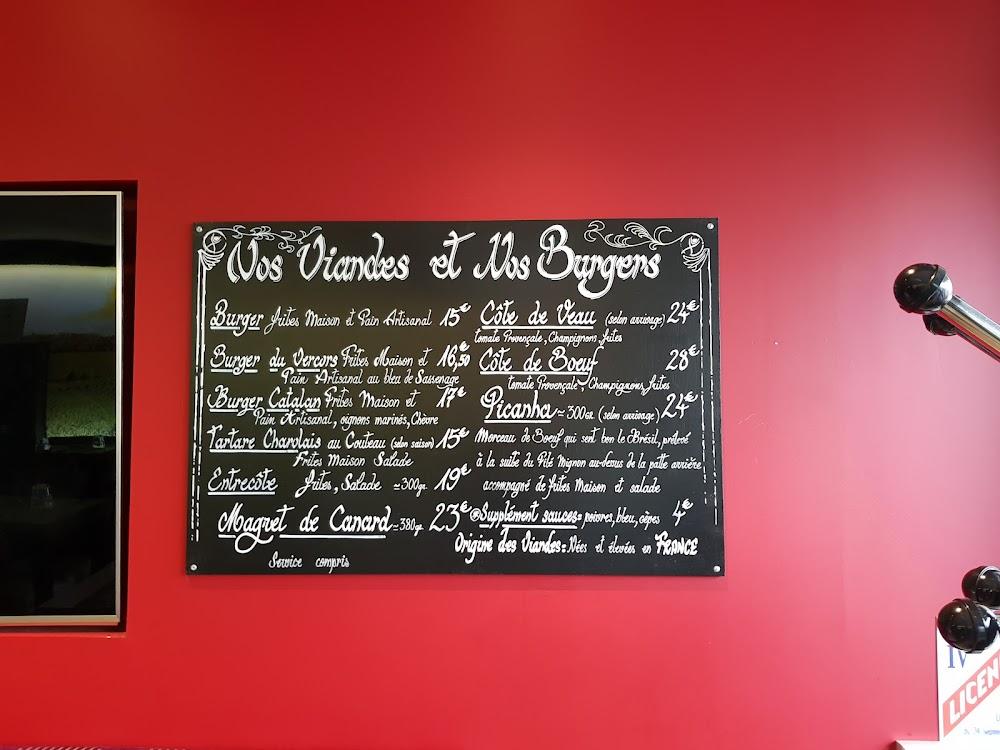 Nos Viandes et Nos Burgers
Burger frites Maison et Pain Artisanal 15€
Burger du Vercors Frites Maison et 16,50€
Pain Artisanal au bleu de Sassenage
Burger Catalan Frites Maison et 17€
Pain Artisanal, oignons marinés, Chèvre
Tartare Charolais au Couteau (selon saison) 15€
Frites Maison Salade
Entrecôte frites, Salade ≃300gr. 19€
Magret de Canard ≃380gr. 23€
Service compris
Côte de Veau (selon arrivage) 24€
tomate Provençale, Champignons, frites
Côte de Boeuf 28€
tomate Provençale, Champignons, frites
Picanha ≃300gr. (selon arrivage) 24€
Morceau de Boeuf qui sent bon le Brésil, prélevé
à la suite du Filé Mignon au-dessus de la patte arrière
accompagné de frites Maison et salade
Supplément sauces= poivres, bleu, cèpes 4€
Origine des Viandes= Nées et élevées en FRANCE
IV
LICEN